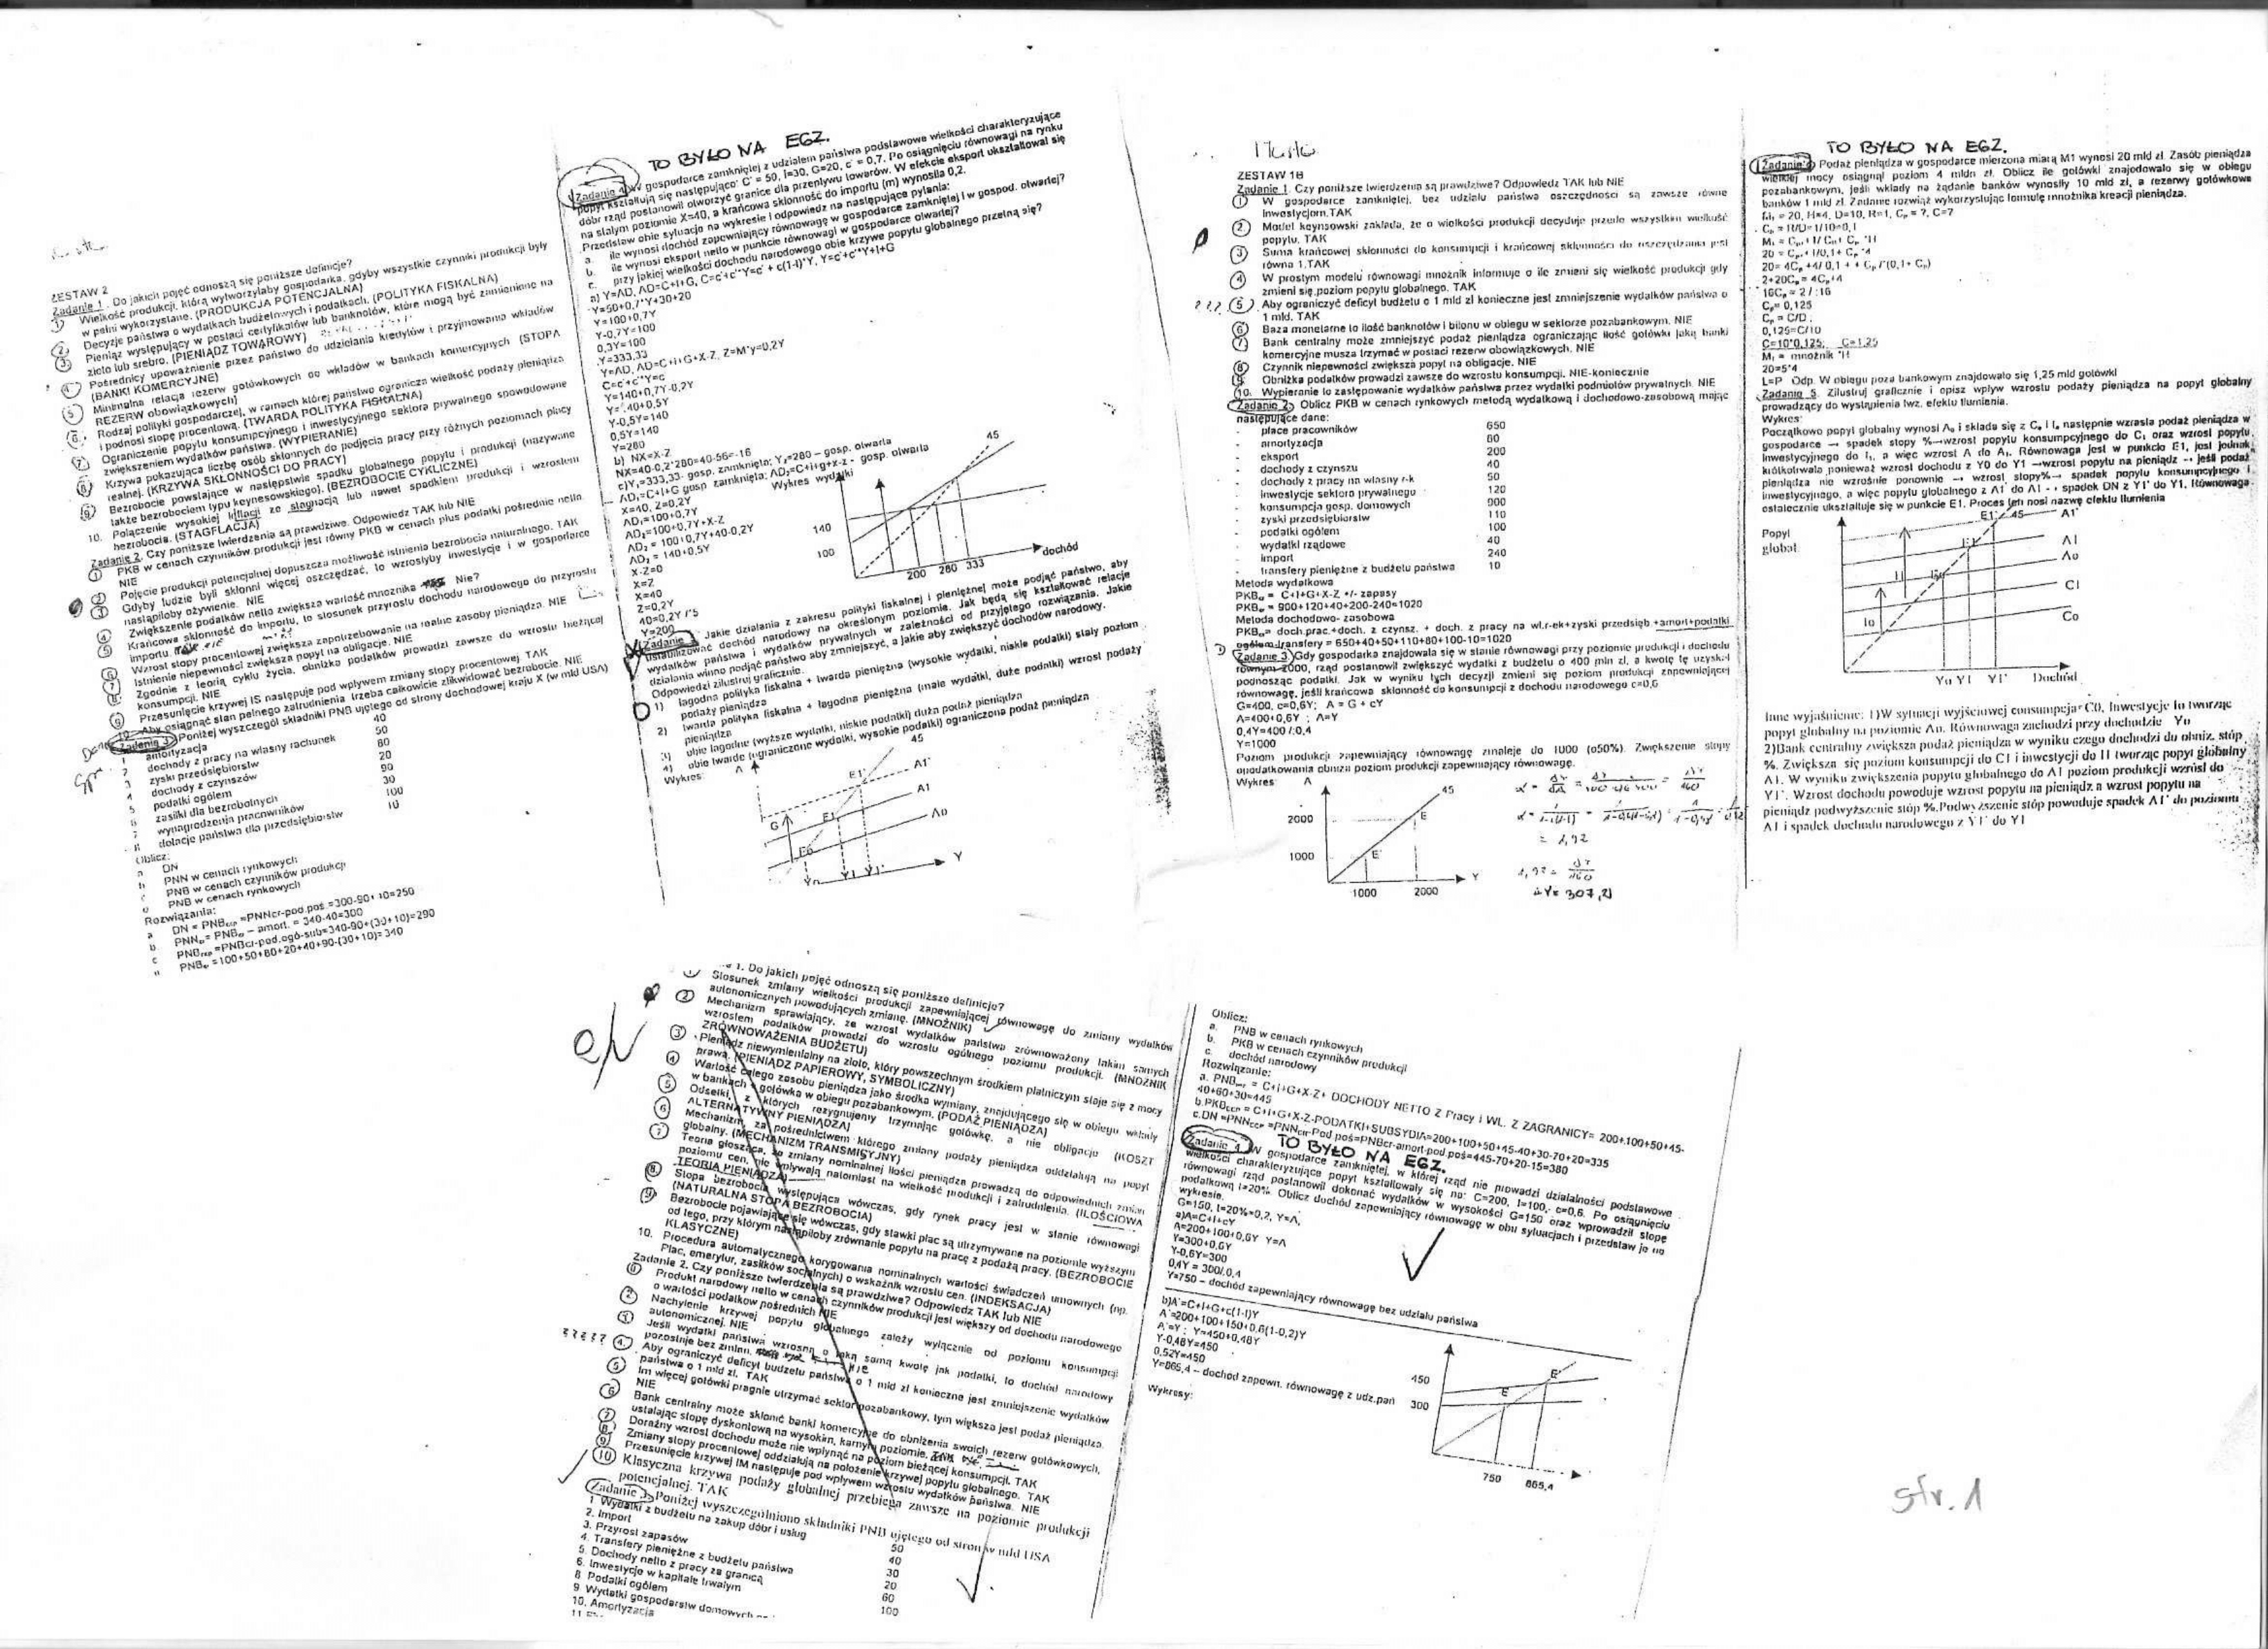 ZESTAW 2
Zadanie 1. Do jakich pojęć odnoszą się poniższe definicje?
1) Wielkość produkcji, którą wytworzyłaby gospodarka, gdyby wszystkie czynniki produkcji były
w pełni wykorzystane. (PRODUKCJA POTENCJALNA)
2 Decyzje państwa o wydatkach budżetowych i podatkach. (POLITYKA FISKALNA)
3 Pieniąz występujący w postaci certyfikatów lub banknotów, które mogą być zamienione na
złoto lub srebro. (PIENIĄDZ TOWAROWY)
4 Pośrednicy upoważnienie przez państwo do udzielania kredytów i przyjmowania wkładów
(BANKI KOMERCYJNE)
5 Minimalna relacja rezerw gotówkowych do wkładów w bankach komercyjnych (STOPA
REZERW obowiązkowych)
6. Rodzaj polityki gospodarczej, w ramach której państwo ogranicza wielkość podaży pieniądza
i podnosi stopę procentową. (TWARDA POLITYKA FISKALNA)
7. Ograniczenie popytu konsumpcyjnego i inwestycyjnego sektora prywatnego spowodowane
zwiększeniem wydatków państwa. (WYPIERANIE)
8) Krzywa pokazująca liczbę osób skłonnych do podjęcia pracy przy różnych poziomach płacy
realnej. (KRZYWA SKŁONNOŚCI DO PRACY)
9) Bezrobocie powstające w następstwie spadku globalnego popytu i produkcji (nazywane
także bezrobociem typu keynesowskiego). (BEZROBOCIE CYKLICZNE)
10. Połączenie wysokiej inflacji ze stagnacją lub nawet spadkiem produkcji i wzrostem
bezrobocia. (STAGFLACJA)
Zadanie 2. Czy poniższe twierdzenia są prawdziwe. Odpowiedz TAK lub NIE
1 PKB w cenach czynników produkcji jest równy PKB w cenach plus podatki pośrednie netto
NIE
2 Pojęcie produkcji potencjalnej dopuszcza możliwość istnienia bezrobocia naturalnego. TAK
3 Gdyby ludzie byli skłonni więcej oszczędzać, to wzrosłyby inwestycje i w gospodarce
nastąpiłoby ożywienie. NIE
4 Zwiększenie podatków netto zwiększa wartość mnożnika Nie?
5 Krańcowa skłonność do importu, to stosunek przyrostu dochodu narodowego do przyrostu
importu.
6 Wzrost stopy procentowej zwiększa zapotrzebowanie na realne zasoby pieniądza. NIE
7 Istnienie niepewności zwiększa popyt na obligacje. NIE
8. Zgodnie z teorią cyklu życia, obniżka podatków prowadzi zawsze do wzrostu bieżącej
konsumpcji. NIE
9 Przesunięcie krzywej IS następuje pod wpływem zmiany stopy procentowej TAK
10. Aby osiągnąć stan pełnego zatrudnienia trzeba całkowicie zlikwidować bezrobocie. NIE
Zadanie 3 Poniżej wyszczegól składniki PNB ujętego od strony dochodowej kraju X (w mld USA)
1 amortyzacja 40
2 dochody z pracy na własny rachunek 50
3 zyski przedsiębiorstw 80
4 dochody z czynszów 20
5 podatki ogółem 90
6 zasiłki dla bezrobotnych 30
7 wynagrodzenia pracowników 100
8 dotacje państwa dla przedsiębiorstw 10
Oblicz:
a DN
b PNN w cenach rynkowych
c PNB w cenach czynników produkcji
d PNB w cenach rynkowych
Rozwiązania:
a DN = PNB =PNNcr-pod.poś.=300-90+10=250
b PNN = PNB – amort. = 340-40=300
c PNB =PNBcr-pod.ogó-sub=340-90+(30+10)=290
d PNB =100+50+80+20+40+90-(30+10)=340
TO BYŁO NA EGZ.
Zadanie 4 W gospodarce zamkniętej z udziałem państwa podstawowe wielkości charakteryzujące
popyt kształtują się następująco: C' = 50, I=30, G=20, c' = 0,7. Po osiągnięciu równowagi na rynku
dóbr rząd postanowił otworzyć granice dla przepływu towarów. W efekcie eksport ukształtował się
na stałym poziomie X=40, a krańcowa skłonność do importu (m) wynosiła 0,2.
Przedstaw obie sytuacje na wykresie i odpowiedz na następujące pytania:
a. ile wynosi dochód zapewniający równowagę w gospodarce zamkniętej i w gospod. otwartej?
b. ile wynosi eksport netto w punkcie równowagi w gospodarce otwartej?
c. przy jakiej wielkości dochodu narodowego obie krzywe popytu globalnego przetną się?
a) Y=AD, AD=C+I+G, C=c'+c''Y=c' + c(1-t)*Y, Y=c'+c''Y+I+G
Y=50+0,7*Y+30+20
Y=100+0,7Y
Y-0,7Y=100
0,3Y=100
Y=333,33
Y=AD, AD=C+I+G+X-Z, Z=M*y=0,2Y
C=c'+c''Y=c
Y=140+0,7Y-0,2Y
Y=140+0,5Y
Y-0,5Y=140
0,5Y=140
Y=280
b) NX=X-Z
NX=40-0,2*280=40-56=-16
c)Y₁=333,33- gosp. zamknięta; Y₂=280 – gosp. otwarta
AD₁=C+I+G gosp zamknięta; AD₂=C+i+g+x-z - gosp. otwarta
X=40, Z=0,2Y
Wykres wydatki
45
AD₁=100+0,7Y
AD₂=100+0,7Y+X-Z
AD₂ = 100+0,7Y+40-0,2Y
AD₂ = 140+0,5Y
140
100
200 280 333
dochód
X-Z=0
X=Z
X=40
Z=0,2Y
40=0,2Y /*5
Y=200
Zadanie 5 Jakie działania z zakresu polityki fiskalnej i pieniężnej może podjąć państwo, aby
ustabilizować dochód narodowy na określonym poziomie. Jak będą się kształtować relacje
wydatków państwa i wydatków prywatnych w zależności od przyjętego rozwiązania. Jakie
działania winno podjąć państwo aby zmniejszyć, a jakie aby zwiększyć dochodów narodowy.
Odpowiedzi zilustruj graficznie
1) łagodna polityka fiskalna + twarda pieniężna (wysokie wydatki, niskie podatki) stały poziom
podaży pieniądza
2) twarda polityka fiskalna + łagodna pieniężna (małe wydatki, duże podatki) wzrost podaży
pieniądza
3) obie łagodne (wyższe wydatki, niskie podatki) duża podaż pieniądza
4) obie twarde (ograniczone wydatki, wysokie podatki) ograniczona podaż pieniądza
Wykres
A
45
E1' A1'
A1
G E1
Ao
E0
Yo Y1 Y1'
Y
ZESTAW 1B
Zadanie 1. Czy poniższe twierdzenia są prawdziwe? Odpowiedz TAK lub NIE
1 W gospodarce zamkniętej, bez udziału państwa oszczędności są zawsze równe
inwestycjom.TAK
2. Model keynsowski zakłada, że o wielkości produkcji decyduje przede wszystkim wielkość
popytu. TAK
3 Suma krańcowej skłonności do konsumpcji i krańcowej skłonności do oszczędzania jest
równa 1.TAK
4 W prostym modelu równowagi mnożnik informuje o ile zmieni się wielkość produkcji gdy
zmieni się poziom popytu globalnego. TAK
??? 5 Aby ograniczyć deficyt budżetu o 1 mld zł konieczne jest zmniejszenie wydatków państwa o
1 mld. TAK
6 Baza monetarne to ilość banknotów i bilonu w obiegu w sektorze pozabankowym. NIE
7 Bank centralny może zmniejszyć podaż pieniądza ograniczając ilość gotówki jaką banki
komercyjne musza trzymać w postaci rezerw obowiązkowych. NIE
8 Czynnik niepewności zwiększa popyt na obligacje. NIE
9. Obniżka podatków prowadzi zawsze do wzrostu konsumpcji. NIE-koniecznie
10. Wypieranie to zastępowanie wydatków państwa przez wydatki podmiotów prywatnych. NIE
Zadanie 2. Oblicz PKB w cenach rynkowych metodą wydatkową i dochodowo-zasobową mając
następujące dane:
- płace pracowników 650
- amortyzacja 80
- eksport 200
- dochody z czynszu 40
- dochody z pracy na własny r-k 50
- inwestycje sektora prywatnego 120
- konsumpcja gosp. domowych 900
- zyski przedsiębiorstw 110
- podatki ogółem 100
- wydatki rządowe 40
- import 240
- transfery pieniężne z budżetu państwa 10
Metoda wydatkowa
PKB = C+I+G+X-Z +/- zapasy
PKB = 900+120+40+200-240=1020
Metoda dochodowo- zasobowa
PKB = doch.prac.+doch. z czynsz. + doch. z pracy na wł.r-ek+zyski przedsięb +amort+podatki
ogółem-transfery = 650+40+50+110+80+100-10=1020
Zadanie 3. Gdy gospodarka znajdowała się w stanie równowagi przy poziomie produkcji i dochodu
równym 2000, rząd postanowił zwiększyć wydatki z budżetu o 400 mln zł, a kwotę tę uzyskał
podnosząc podatki. Jak w wyniku tych decyzji zmieni się poziom produkcji zapewniającej
równowagę, jeśli krańcowa skłonność do konsumpcji z dochodu narodowego c=0,6
G=400, c=0,6Y; A = G + cY
A=400+0,6Y ; A=Y
0,4Y=400 /:0,4
Y=1000
Poziom produkcji zapewniający równowagę zmaleje do 1000 (o50%). Zwiększenie stopy
opodatkowania obniża poziom produkcji zapewniający równowagę.
Wykres A
45
2000
E
1000
E'
1000 2000
Y
= 1,92
ΔY= 307,2
TO BYŁO NA EGZ.
Zadanie 4 Podaż pieniądza w gospodarce mierzona miarą M1 wynosi 20 mld zł. Zasób pieniądza
wielkiej mocy osiągnął poziom 4 mldn zł. Oblicz ile gotówki znajdowało się w obiegu
pozabankowym, jeśli wkłady na żądanie banków wynosiły 10 mld zł, a rezerwy gotówkowe
banków 1 mld zł. Zadanie rozwiąż wykorzystując formułę mnożnika kreacji pieniądza.
M₁ = 20, H=4, D=10, R=1, Cₚ = ?, C=?
Cᵦ = R/D=1/10=0,1
M₁ = Cₚ+1/ Cᵦ+ Cₚ *H
20 = Cₚ+ 1/0,1+ Cₚ *4
20= 4Cₚ +4/ 0,1 + Cₚ /*(0,1+ Cₚ)
2+20Cₚ = 4Cₚ+4
16Cₚ = 2 / :16
Cₚ= 0,125
Cₚ = C/D
0,125=C/10
C=10*0,125; C=1,25
M₁ = mnożnik *H
20=5*4
L=P Odp. W obiegu poza bankowym znajdowało się 1,25 mld gotówki
Zadanie 5. Zilustruj graficznie i opisz wpływ wzrostu podaży pieniądza na popyt globalny
prowadzący do wystąpienia twz. efektu tłumienia.
Wykres
Początkowo popyt globalny wynosi A₀ i składa się z C₀ I I₀ następnie wzrasta podaż pieniądza w
gospodarce → spadek stopy %→wzrost popytu konsumpcyjnego do C₁ oraz wzrost popytu
inwestycyjnego do I₁, a więc wzrost A do A₁. Równowaga jest w punkcie E1, jest jednak
krótkotrwała ,ponieważ wzrost dochodu z Y0 do Y1 →wzrost popytu na pieniądz → jeśli podaż
pieniądza nie wzrośnie ponownie → wzrost stopy%→ spadek popytu konsumpcyjnego i
inwestycyjnego, a więc popytu globalnego z A1' do A1 → spadek DN z Y1' do Y1. Równowaga
ostatecznie ukształtuje się w punkcie E1. Proces ten nosi nazwę efektu tłumienia
Popyt
globat
E1' 45 A1'
E1 A1
I1 Ao
Eo
C1
Io Co
Yo Y1 Y1' Dochód
Inne wyjaśnienie: 1)W sytuacji wyjściowej consumpcja= C0, Inwestycje Io tworząc
popyt globalny na poziomie Ao. Równowaga zachodzi przy dochodzie Yo
2)Bank centralny zwiększa podaż pieniądza w wyniku czego dochodzi do obniż. stóp
%. Zwiększa się poziom konsumpcji do C1 i inwestycji do I1 tworząc popyt globalny
A1. W wyniku zwiększenia popytu globalnego do A1 poziom produkcji wzrósł do
Y1'. Wzrost dochodu powoduje wzrost popytu na pieniądz a wzrost popytu na
pieniądz podwyższenie stóp %.Podwyższenie stóp powoduje spadek A1' do poziomu
A1 i spadek dochodu narodowego z Y1' do Y1
1. Do jakich pojęć odnoszą się poniższe definicje?
Stosunek zmiany wielkości produkcji zapewniającej równowagę do zmiany wydatków
autonomicznych powodujących zmianę. (MNOŻNIK)
2 Mechanizm sprawiający, że wzrost wydatków państwa zrównoważony takim samych
wzrostem podatków prowadzi do wzrostu ogólnego poziomu produkcji. (MNOŻNIK
ZRÓWNOWAŻENIA BUDŻETU)
3 Pieniądz niewymienialny na złoto, który powszechnym środkiem płatniczym staje się z mocy
prawa. (PIENIĄDZ PAPIEROWY, SYMBOLICZNY)
4 Wartość całego zasobu pieniądza jako środka wymiany, znajdującego się w obiegu wkłady
w bankach + gotówka w obiegu pozabankowym. (PODAŻ PIENIĄDZA)
5 Odsetki, z których rezygnujemy trzymając gotówkę, a nie obligacje (KOSZT
ALTERNATYWNY PIENIĄDZA)
6 Mechanizm, za pośrednictwem którego zmiany podaży pieniądza oddziałują na popyt
globalny. (MECHANIZM TRANSMISYJNY)
7 Teoria głosząca, że zmiany nominalnej ilości pieniądza prowadzą do odpowiednich zmian
poziomu cen, nie wpływają natomiast na wielkość produkcji i zatrudnienia. (ILOŚCIOWA
TEORIA PIENIĄDZA)
8. Stopa bezrobocia występująca wówczas, gdy rynek pracy jest w stanie równowagi
(NATURALNA STOPA BEZROBOCIA)
9 Bezrobocie pojawiające się wówczas, gdy stawki płac są utrzymywane na poziomie wyższym
od tego, przy którym nastąpiłoby zrównanie popytu na pracę z podażą pracy. (BEZROBOCIE
KLASYCZNE)
10. Procedura automatycznego korygowania nominalnych wartości świadczeń umownych (np.
Płac, emerytur, zasiłków socjalnych) o wskaźnik wzrostu cen. (INDEKSACJA)
Zadanie 2. Czy poniższe twierdzenia są prawdziwe? Odpowiedz TAK lub NIE
1 Produkt narodowy netto w cenach czynników produkcji jest większy od dochodu narodowego
o wartości podatkow pośrednich NIE
2 Nachylenie krzywej popytu globalnego zależy wyłącznie od poziomu konsumpcji
autonomicznej. NIE
3 Jeśli wydatki państwa wzrosną o taką samą kwotę jak podatki, to dochód narodowy
pozostaje bez zmian. NIE
????? 4. Aby ograniczyć deficyt budżetu państwa o 1 mld zł konieczne jest zmniejszenie wydatków
państwa o 1 mld zł. TAK
5 Im więcej gotówki pragnie utrzymać sektor pozabankowy, tym większa jest podaż pieniądza.
NIE
6 Bank centralny może skłonić banki komercyjne do obniżenia swoich rezerw gotówkowych,
ustalając stopę dyskontową na wysokim, karnym poziomie.
7 Doraźny wzrost dochodu może nie wpłynąć na poziom bieżącej konsumpcji. TAK
8 Zmiany stopy procentowej oddziałują na położenie krzywej popytu globalnego. TAK
9 Przesunięcie krzywej IM następuje pod wpływem wzrostu wydatków państwa. NIE
10 Klasyczna krzywa podaży globalnej przebiega zawsze na poziomie produkcji
potencjalnej. TAK
Zadanie 3. Poniżej wyszczególniono składniki PNB ujętego od strony w mld USA
1 Wydatki z budżetu na zakup dóbr i usług 50
2. Import 40
3. Przyrost zapasów 30
4. Transfery pieniężne z budżetu państwa 20
5. Dochody netto z pracy za granicą 60
6. Inwestycje w kapitale trwałym 100
8 Podatki ogółem
9 Wydatki gospodarstw domowych
10. Amortyzacja
Oblicz:
a. PNB w cenach rynkowych
b. PKB w cenach czynników produkcji
c. dochód narodowy
Rozwiązanie:
a. PNB = C+I+G+X-Z+ DOCHODY NETTO Z Pracy i WŁ. Z ZAGRANICY= 200+100+50+45-
40+60+30=445
b.PKB = C+I+G+X-Z-PODATKI+SUBSYDIA=200+100+50+45-40+30-70+20=335
c.DN =PNN =PNN -Pod poś=PNBcr-amort-pod poś=445-70+20-15=380
Zadanie 4 TO BYŁO NA EGZ.
W gospodarce zamkniętej, w której rząd nie prowadzi działalności podstawowe
wielkości charakteryzujące popyt kształtowały się na: C=200, I=100, c=0,6. Po osiągnięciu
równowagi rząd postanowił dokonać wydatków w wysokości G=150 oraz wprowadził stopę
podatkową t=20%. Oblicz dochód zapewniający równowagę w obu sytuacjach i przedstaw je na
wykresie.
G=150, t=20%=0,2, Y=A,
a)A=C+I+cY
A=200+100+0,6Y Y=A
Y=300+0,6Y
Y-0,6Y=300
0,4Y = 300/:0,4
Y=750 – dochód zapewniający równowagę bez udziału państwa
b)A'=C+I+G+c(1-t)Y
A'=200+100+150+0,6(1-0,2)Y
A'=Y ; Y=450+0,48Y
Y-0,48Y=450
0,52Y=450
Y=865,4 – dochód zapewn. równowagę z udz.pań
Wykresy:
450
300
E'
E
750 865,4
str. 1